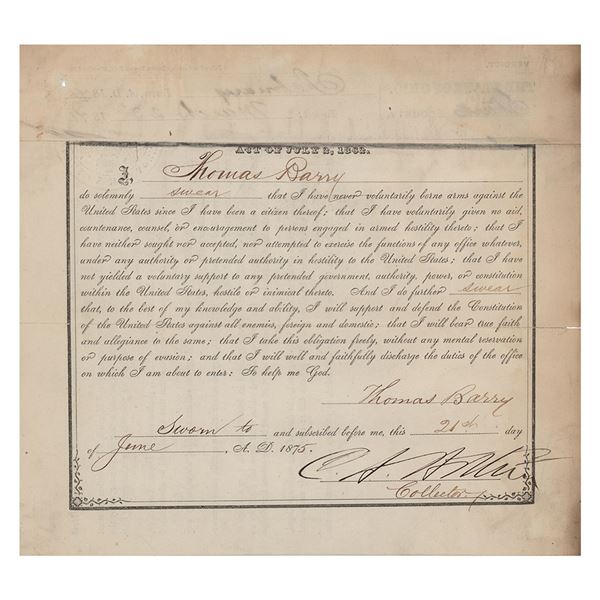 ACT OF JULY 2, 1862.
I, Thomas Barry
do solemnly swear that I have never voluntarily borne arms against the
United States since I have been a citizen thereof; that I have voluntarily given no aid,
countenance, counsel, or encouragement to persons engaged in armed hostility thereto; that I
have neither sought nor accepted, nor attempted to exercise the functions of any office whatever,
under any authority or pretended authority in hostility to the United States; that I have
not yielded a voluntary support to any pretended government, authority, power, or constitution
within the United States, hostile or inimical thereto. And I do further swear
that, to the best of my knowledge and ability, I will support and defend the Constitution
of the United States against all enemies, foreign and domestic: that I will bear true faith
and allegiance to the same; that I take this obligation freely, without any mental reservation
or purpose of evasion; and that I will well and faithfully discharge the duties of the office
on which I am about to enter: So help me God.
Thomas Barry
Sworn to and subscribed before me, this 21st day
of June, A. D. 1875.
Collector